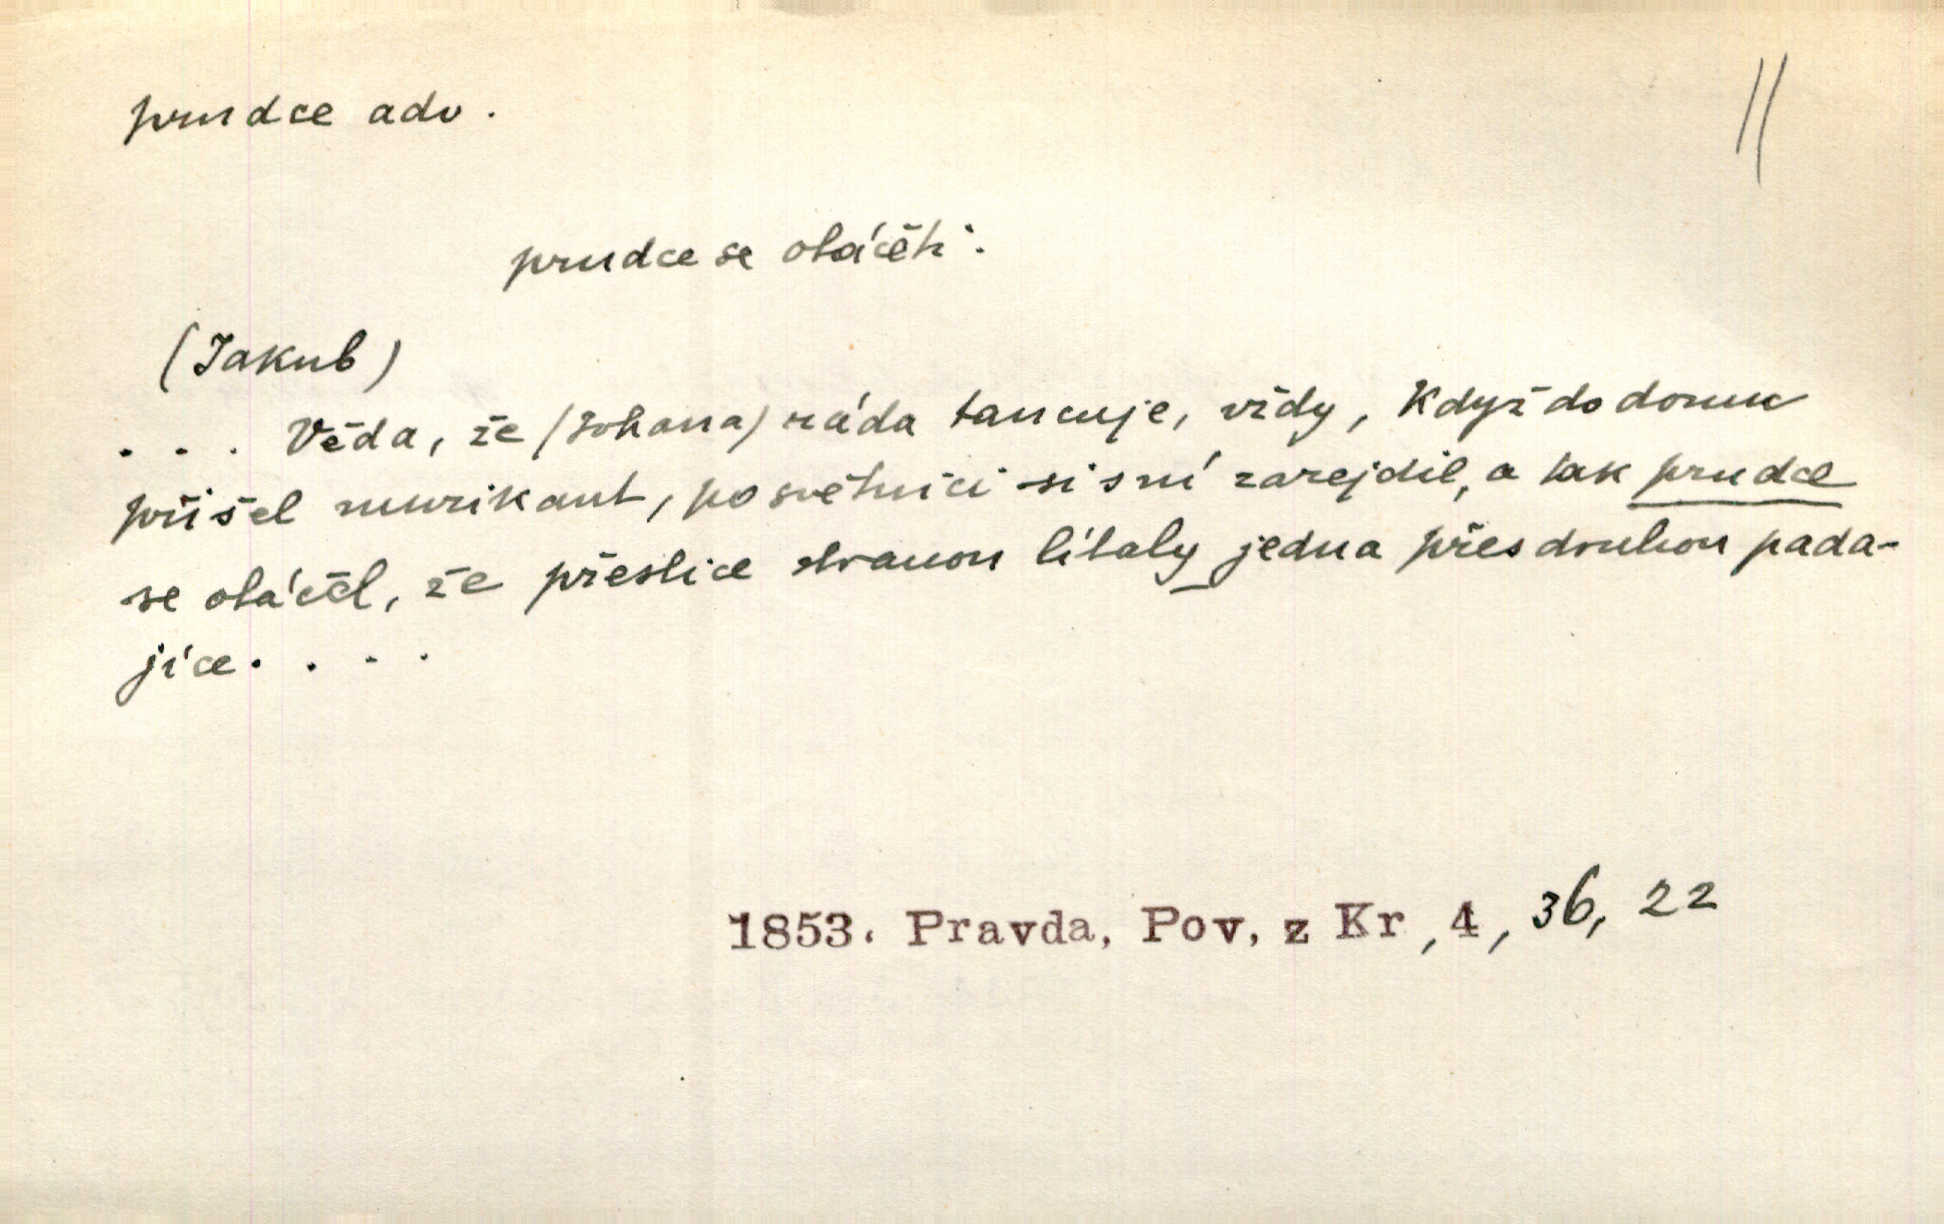 prudce adv.
prudce se otáčeti:
(Jakub)
. . . Věda, že (Johana) ráda tancuje, vždy, když do domu
přišel muzikant, po světnici si s ní zarejdil, a tak prudce
se otáčel, že přeslice stranou lítaly jedna přes druhou pada-
jíce . . . .
1853. Pravda, Pov. z Kr, 4, 36, 22